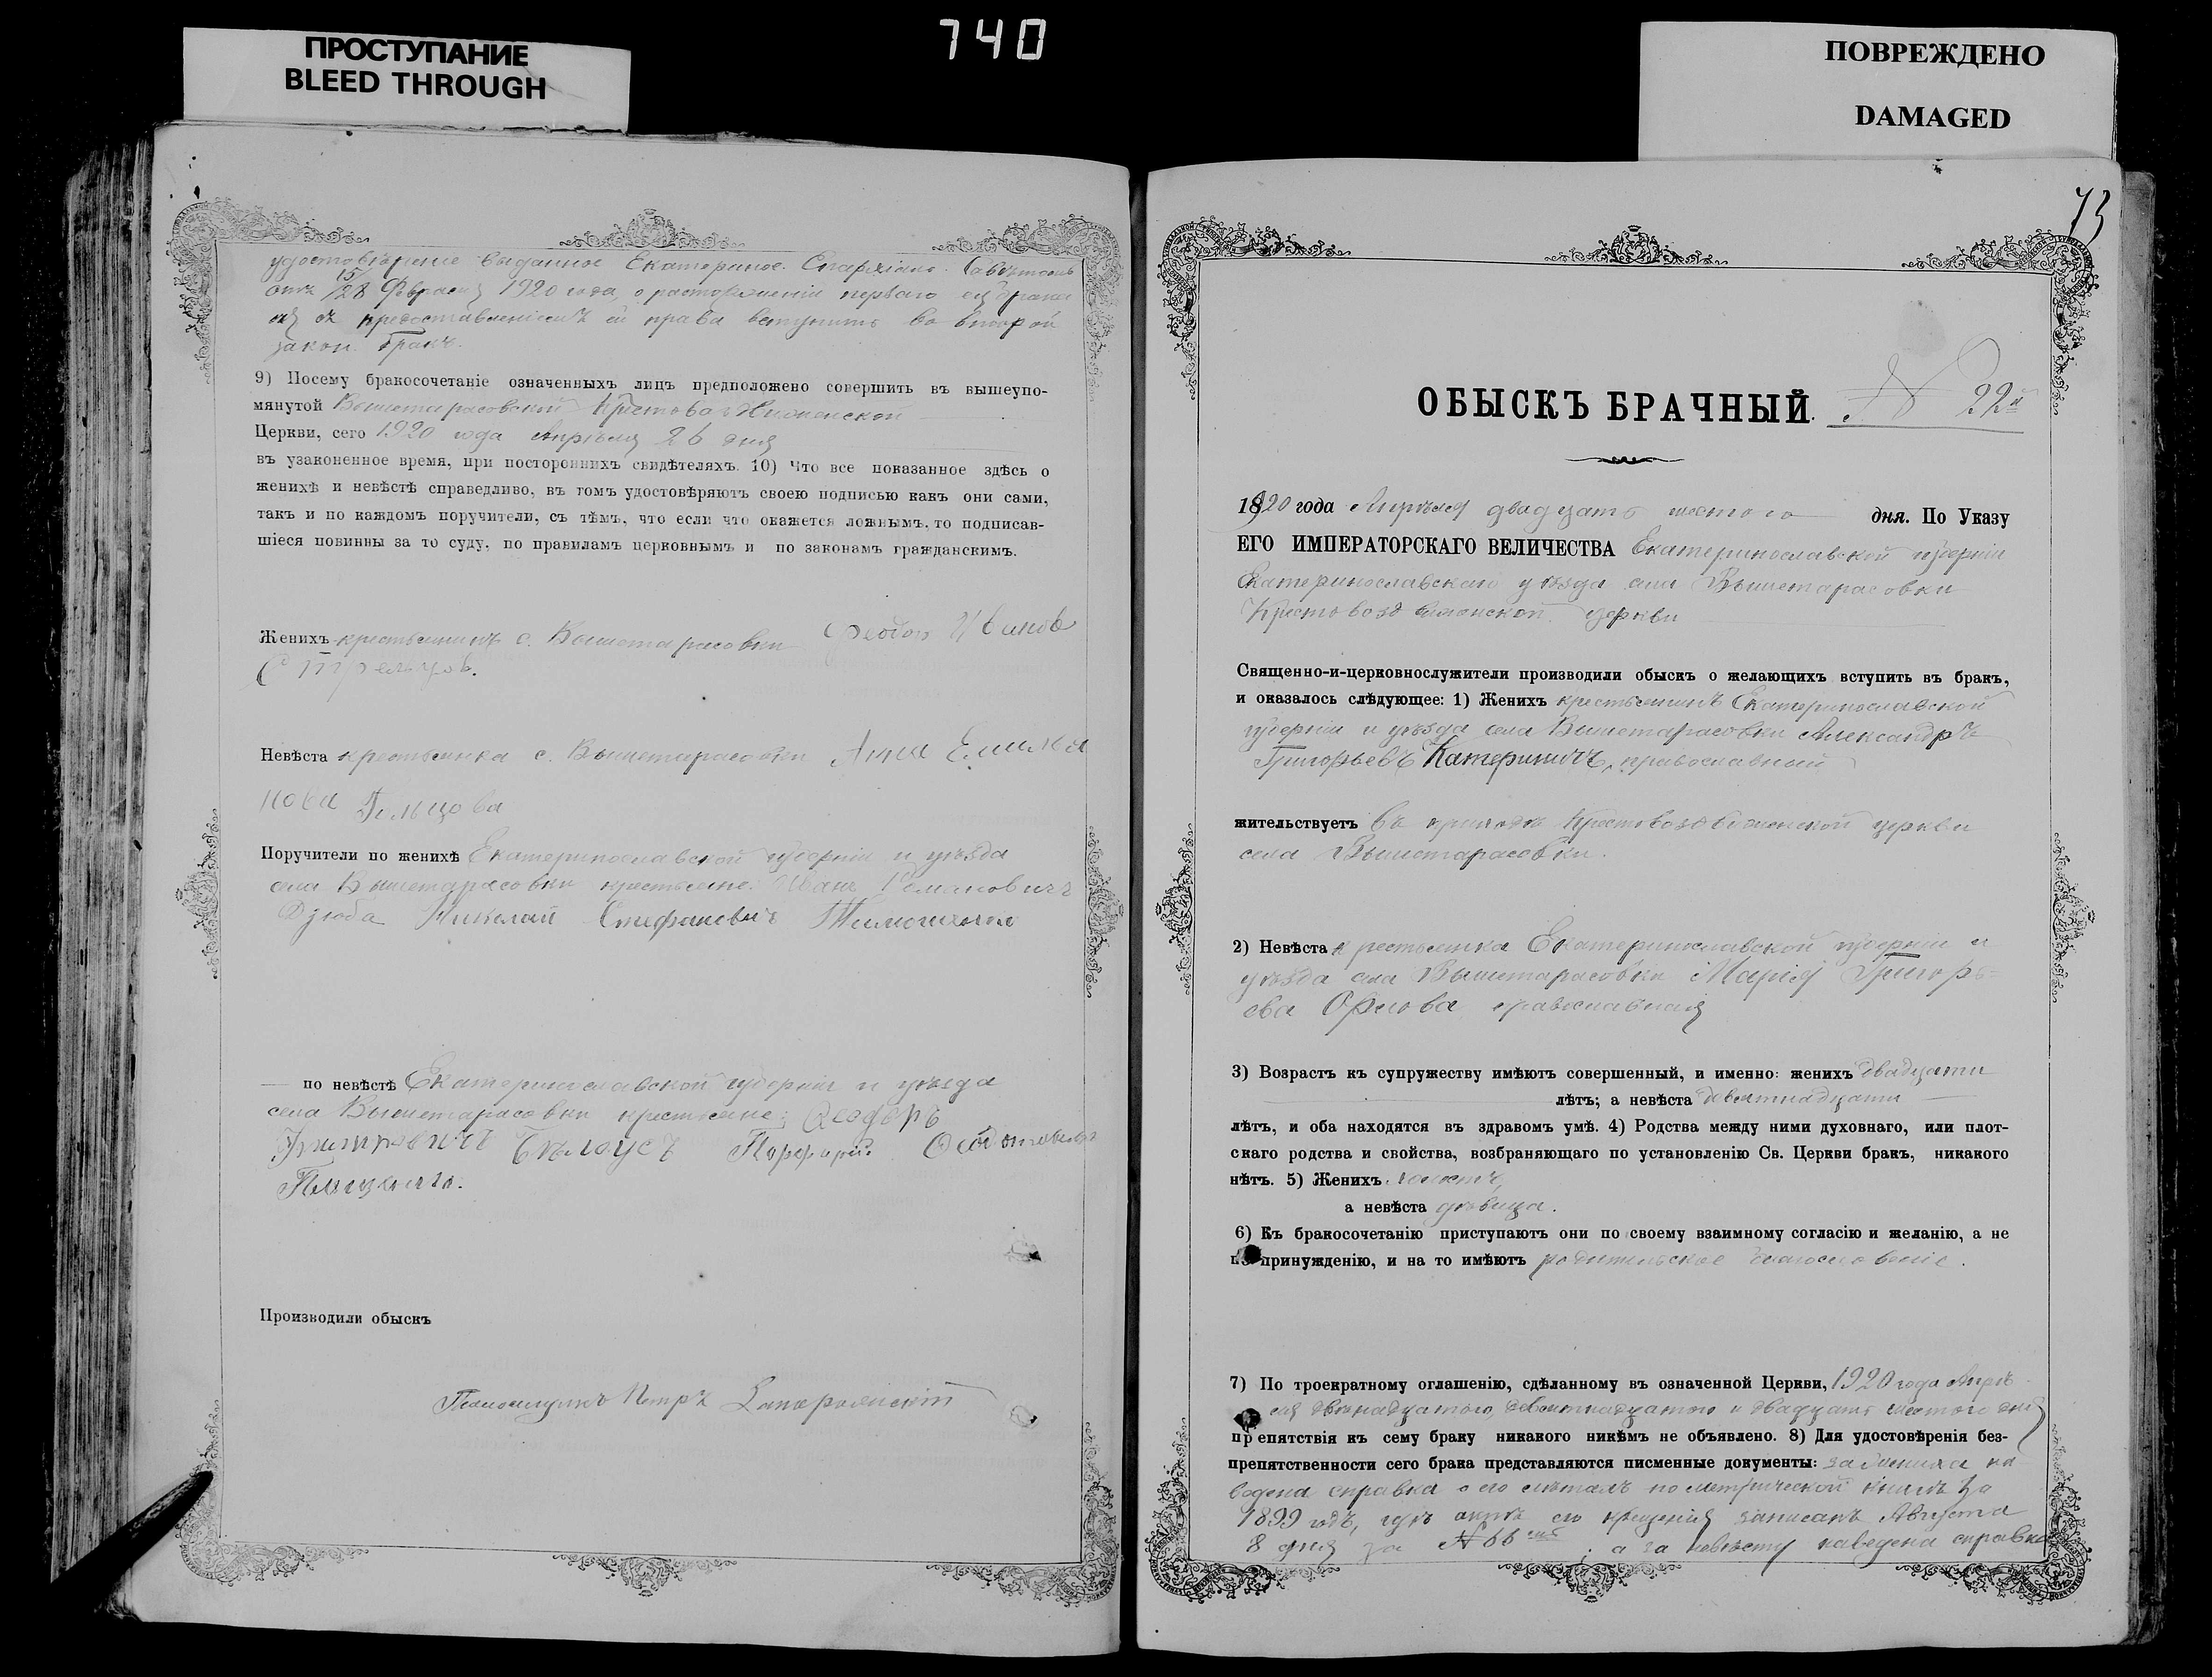 ПРОСТУПАНИЕ
BLEED THROUGH
740
ПОВРЕЖДЕНО
DAMAGED
удостовѣреніе выданное Екатеринос. Епархіальн. Совѣтомъ
отъ 15/28 Февраля 1920 года, о расторженіи перваго ея брака
съ предоставленіемъ ей права вступить во второй
закон. бракъ.
9) Посему бракосочетаніе означенныхъ лицъ предположено совершить въ вышеупо-
мянутой Вышетарасовской Крестовоздвиженской
Церкви, сего 1920 года Апрѣля 26 дня
въ узаконенное время, при постороннихъ свидѣтеляхъ. 10) Что все показанное здѣсь о
женихѣ и невѣстѣ справедливо, въ томъ удостовѣряютъ своею подписью какъ они сами,
такъ и по каждомъ поручители, съ тѣмъ, что если что окажется ложнымъ, то подписав-
шіеся повинны за то суду, по правиламъ церковнымъ и по законамъ гражданскимъ.
Женихъ крестьянинъ с. Вышетарасовки Федот Иванов
Стрельцов.
Невѣста крестьянка с. Вышетарасовки Анна
Поручители по женихѣ Екатеринославской губерніи и уѣзда
села Вышетарасовки крестьяне: Иванъ Романовичъ
Дзюба Николай Стефановичъ
по невѣстѣ Екатеринославской губерніи и уѣзда
села Вышетарасовки крестьяне: Феодоръ
Дмитровичъ Бѣлоусъ Порфирій Федотовичъ
Производили обыскъ
Псаломщикъ Петръ
73
ОБЫСКЪ БРАЧНЫЙ. № 22й
1920 года Апрѣля двадцать шестого дня. По Указу
ЕГО ИМПЕРАТОРСКАГО ВЕЛИЧЕСТВА Екатеринославской губерніи
Екатеринославскаго уѣзда села Вышетарасовки
Крестовоздвиженской церкви
Священно-и-церковнослужители производили обыскъ о желающихъ вступить въ бракъ,
и оказалось слѣдующее: 1) Женихъ крестьянинъ Екатеринославской
губерніи и уѣзда села Вышетарасовки Александръ
Григорьевъ Катериничъ, православный
жительствуетъ въ приходѣ Крестовоздвиженской церкви
села Вышетарасовки.
2) Невѣста крестьянка Екатеринославской губерніи и
уѣзда села Вышетарасовки Марія Григорь=
ева Орлова православная
3) Возрастъ къ супружеству имѣютъ совершенный, и именно: женихъ двадцати
лѣтъ; а невѣста девятнадцати
лѣтъ, и оба находятся въ здравомъ умѣ. 4) Родства между ними духовнаго, или плот-
скаго родства и свойства, возбраняющаго по установленію Св. Церкви бракъ, никакого
нѣтъ. 5) Женихъ холостъ,
а невѣста дѣвица.
6) Къ бракосочетанію приступаютъ они по своему взаимному согласію и желанію, а не
по принужденію, и на то имѣютъ родительское благословеніе.
7) По троекратному оглашенію, сдѣланному въ означенной Церкви, 1920 года Апрѣ-
ля двѣнадцатого, девятнадцатого и двадцать шестого дня
препятствія къ сему браку никакого никѣмъ не объявлено. 8) Для удостовѣренія без-
препятственности сего брака представляются писменные документы: за жениха на
ведена справка о его лѣтахъ по метрической книгѣ за
1899 годъ, гдѣ актъ его крещенія записанъ Августа
8 дня за № 66 ; а за невѣсту наведена справка